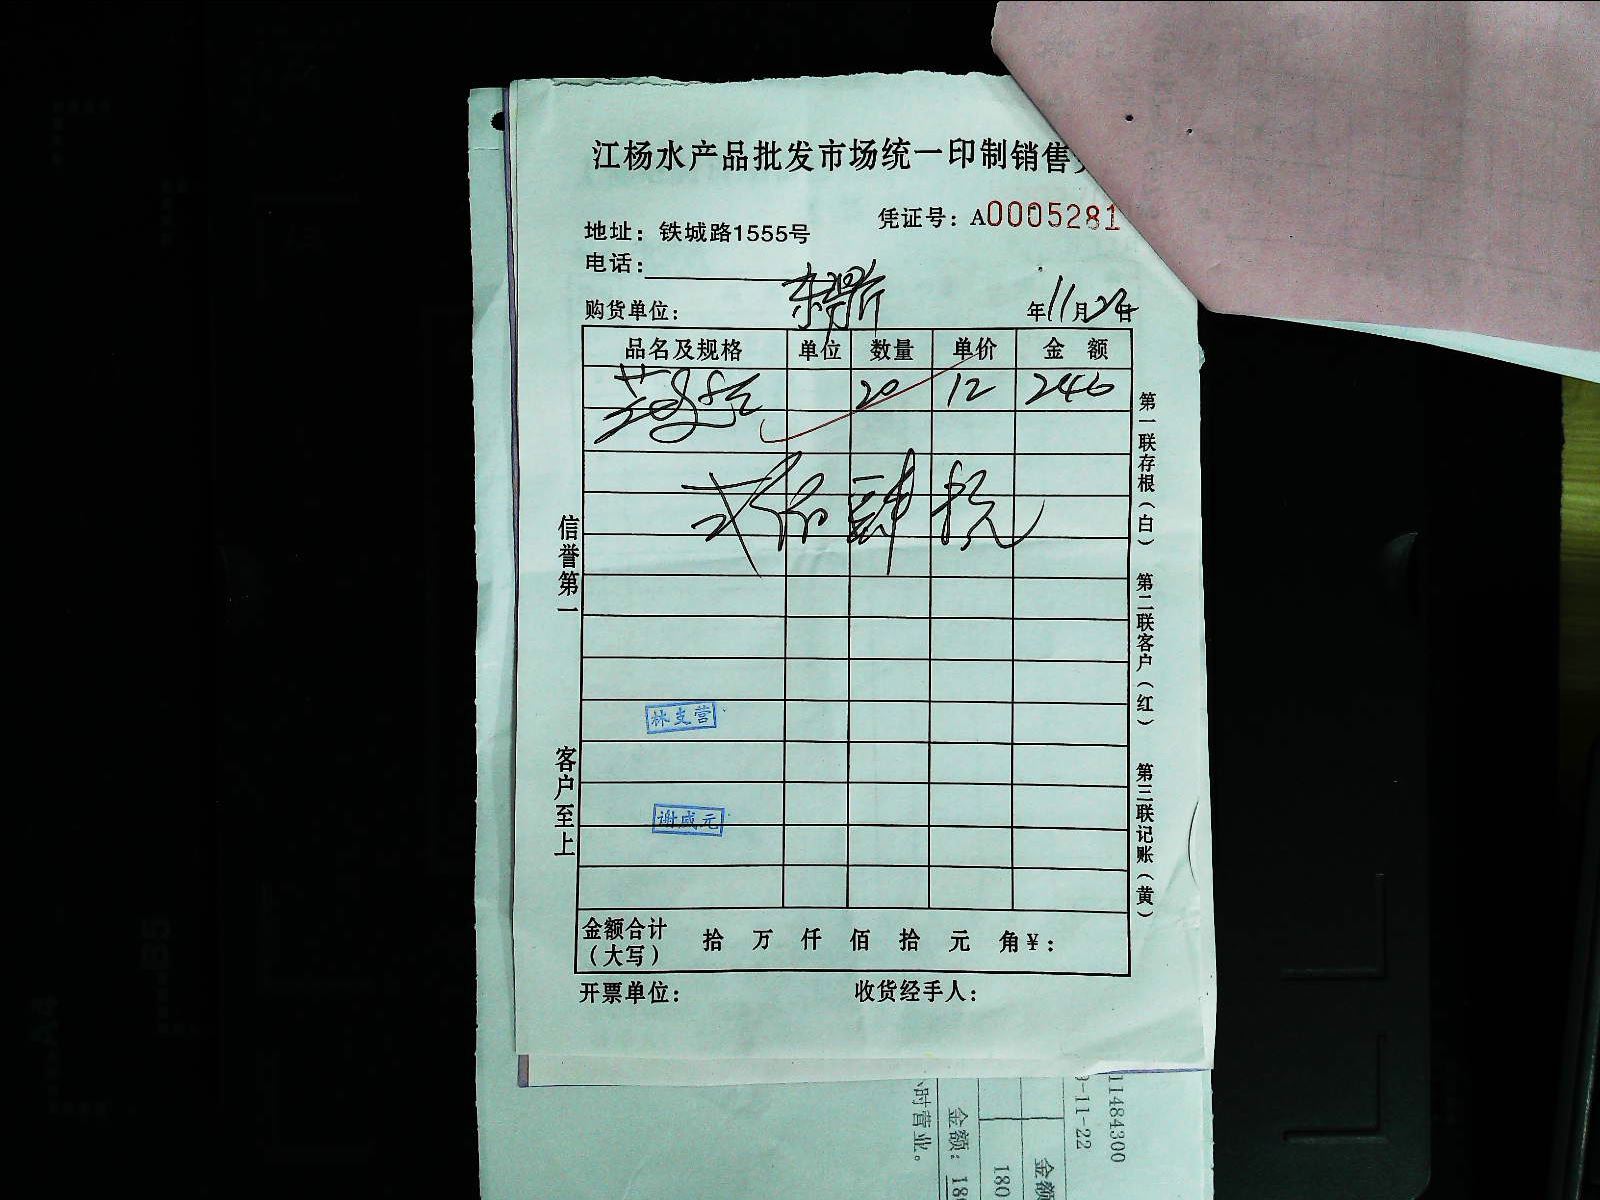 江杨水产品批发市场统一印制销售
凭证号：A0005281
地址：铁城路1555号
电话：
购货单位：
年11月22日
品名及规格 单位 数量 单价 金 额
20 12 240
弍佰肆拾元
信誉第一
客户至上
第一联存根（白） 第二联客户（红） 第三联记账（黄）
林支营
谢咸元
金额合计（大写） 拾 万 仟 佰 拾 元 角¥：
开票单位： 收货经手人：
11484300
9-11-22
金额
180
金额：18
小时营业。